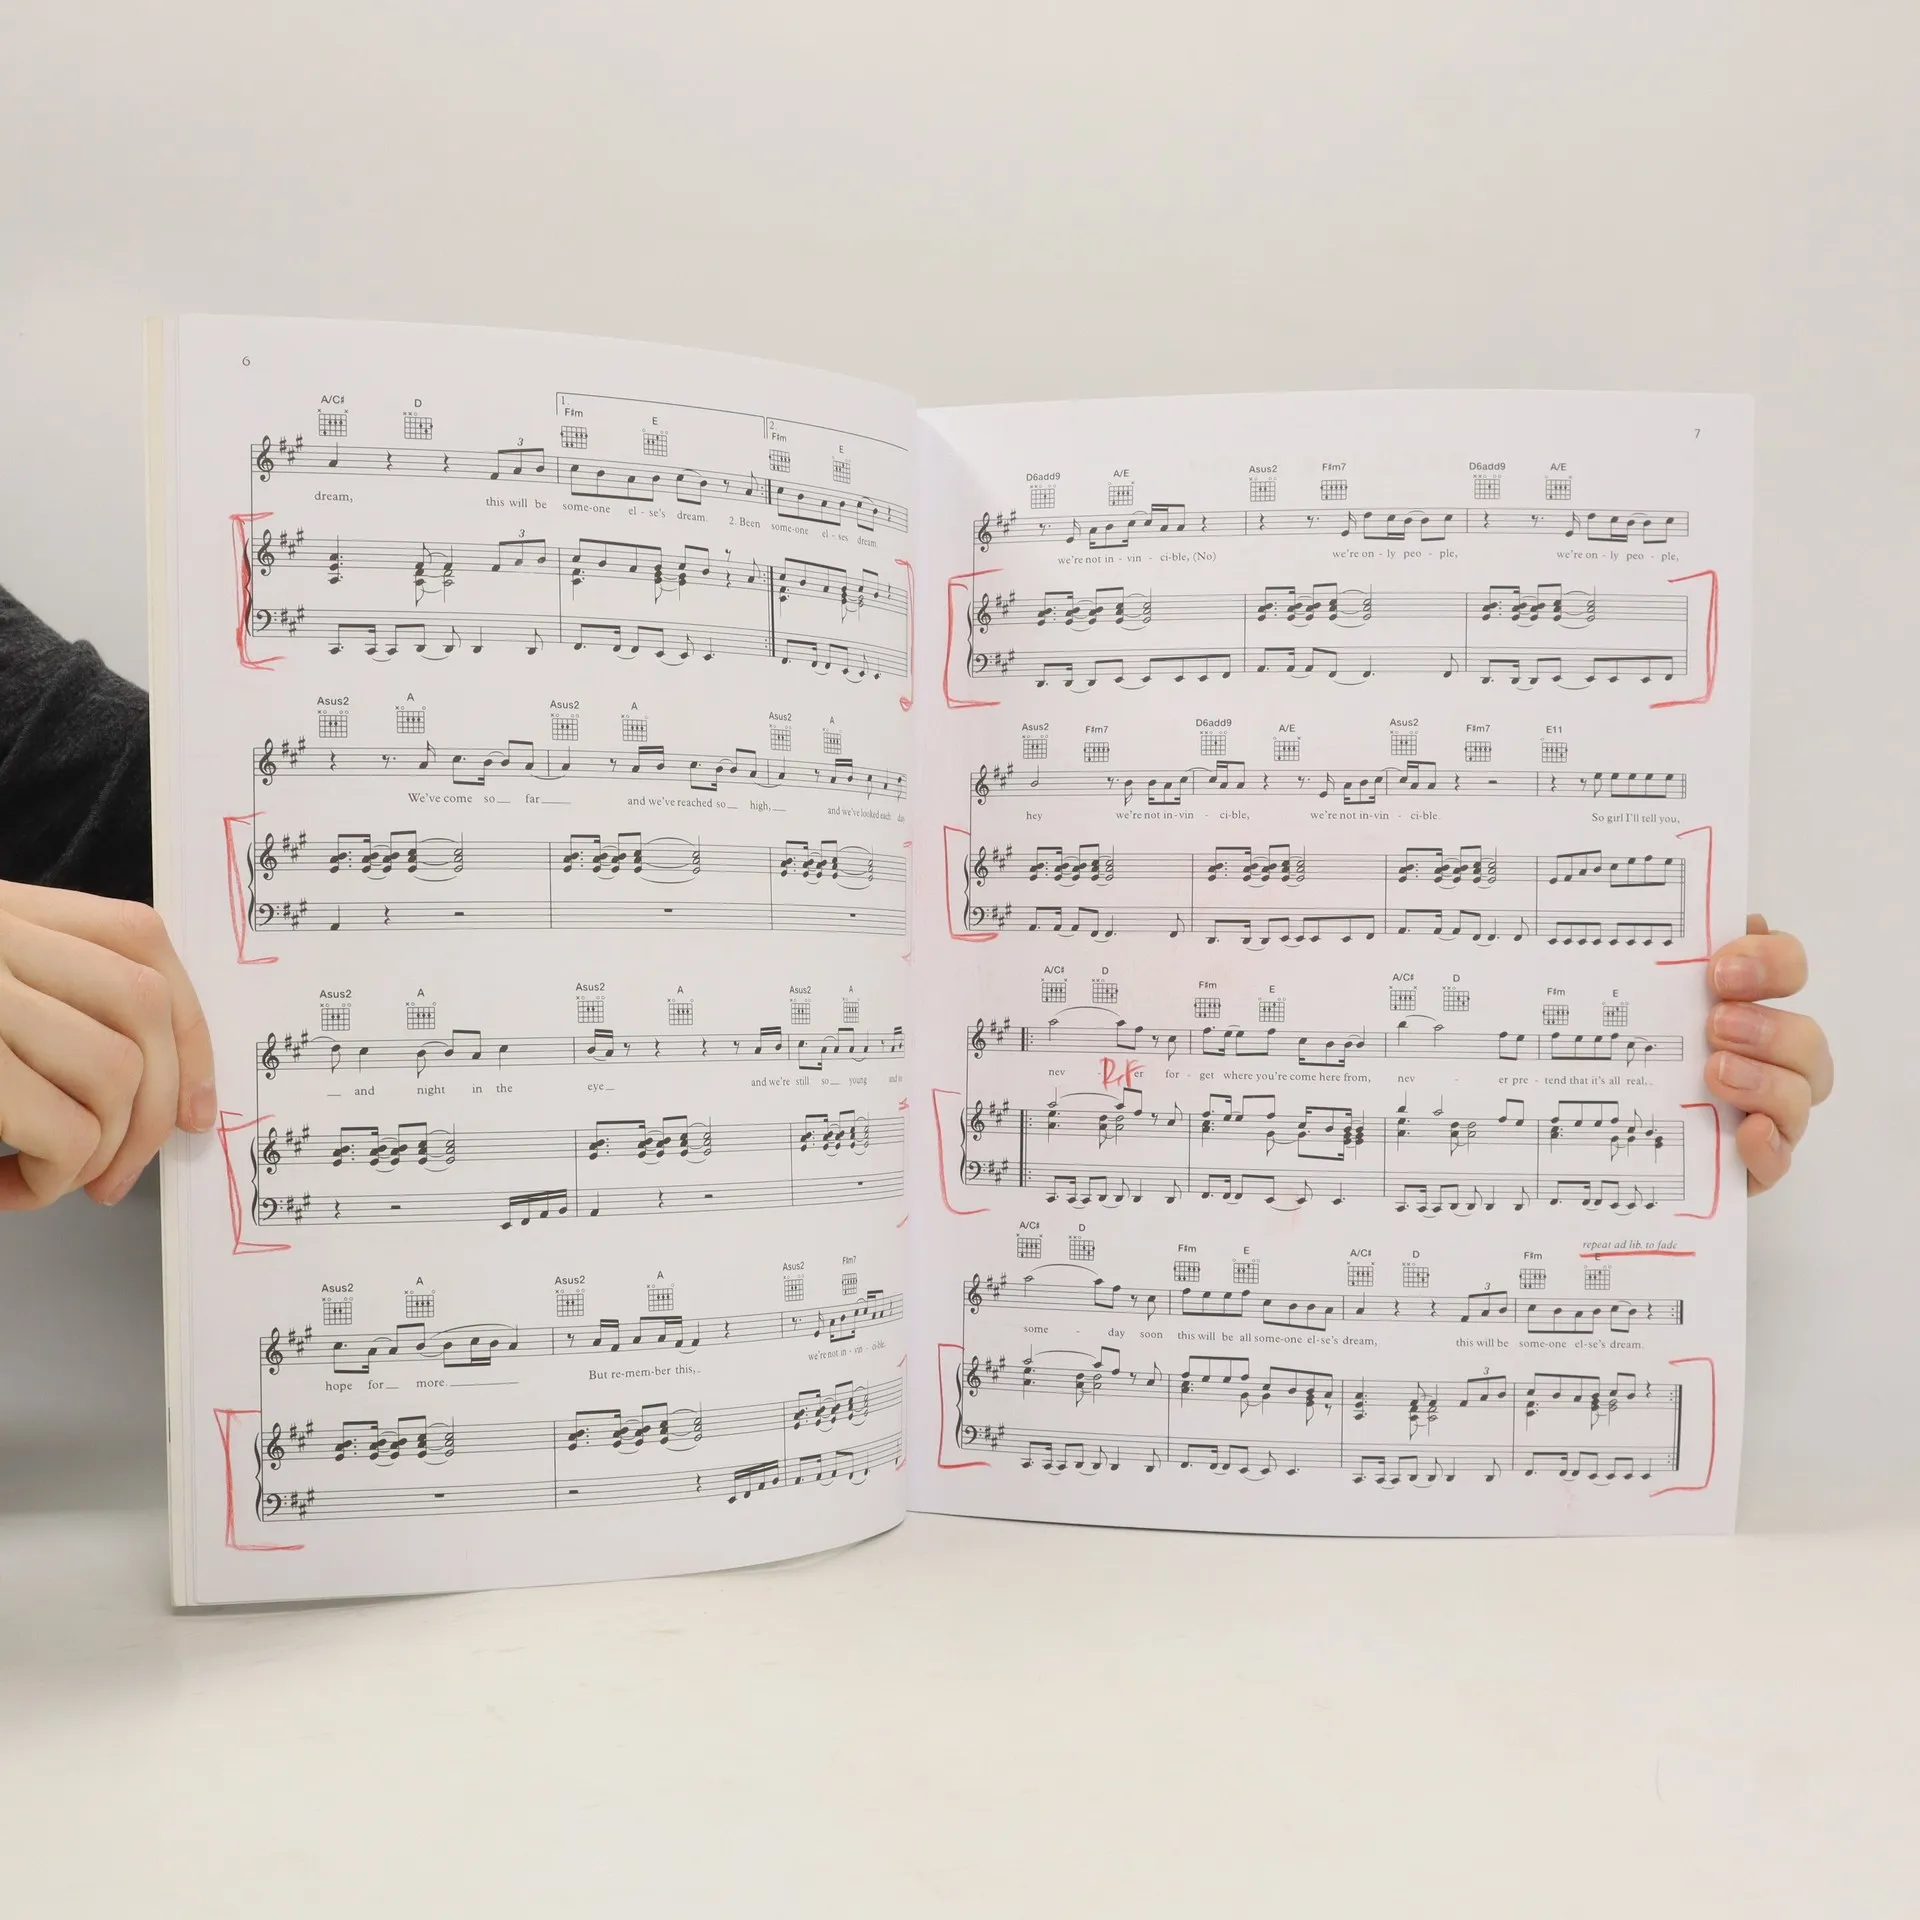 6
A/C♯ D 1. F♯m E 2. F♯m E
3
dream, this will be some-one el - se's dream. 2. Been some-one el - ses dream.
3
Asus2 A Asus2 A Asus2 A
We've come so__ far____ and we've reached so__ high,__ and we've looked each day
Asus2 A Asus2 A Asus2 A
__ and night in the eye__ and we're still so__ young
Asus2 A Asus2 A Asus2 F♯m7
hope for__ more.______ But re-mem-ber this,. we're not in - vin - ci-ble.
7
D6add9 A/E Asus2 F♯m7 D6add9 A/E
we're not in - vin - ci-ble, (No) we're on - ly peo - ple, we're on - ly peo - ple,
Asus2 F♯m7 D6add9 A/E Asus2 F♯m7 E11
hey we're not in-vin - ci-ble, we're not in-vin - ci-ble. So girl I'll tell you,
A/C♯ D F♯m E A/C♯ D F♯m E
nev - er for - get where you're come here from, nev - er pre - tend that it's all real,.
repeat ad lib. to fade
A/C♯ D F♯m E A/C♯ D F♯m E
3
some - day soon this will be all some-one el-se's dream, this will be some-one el-se's dream.
3